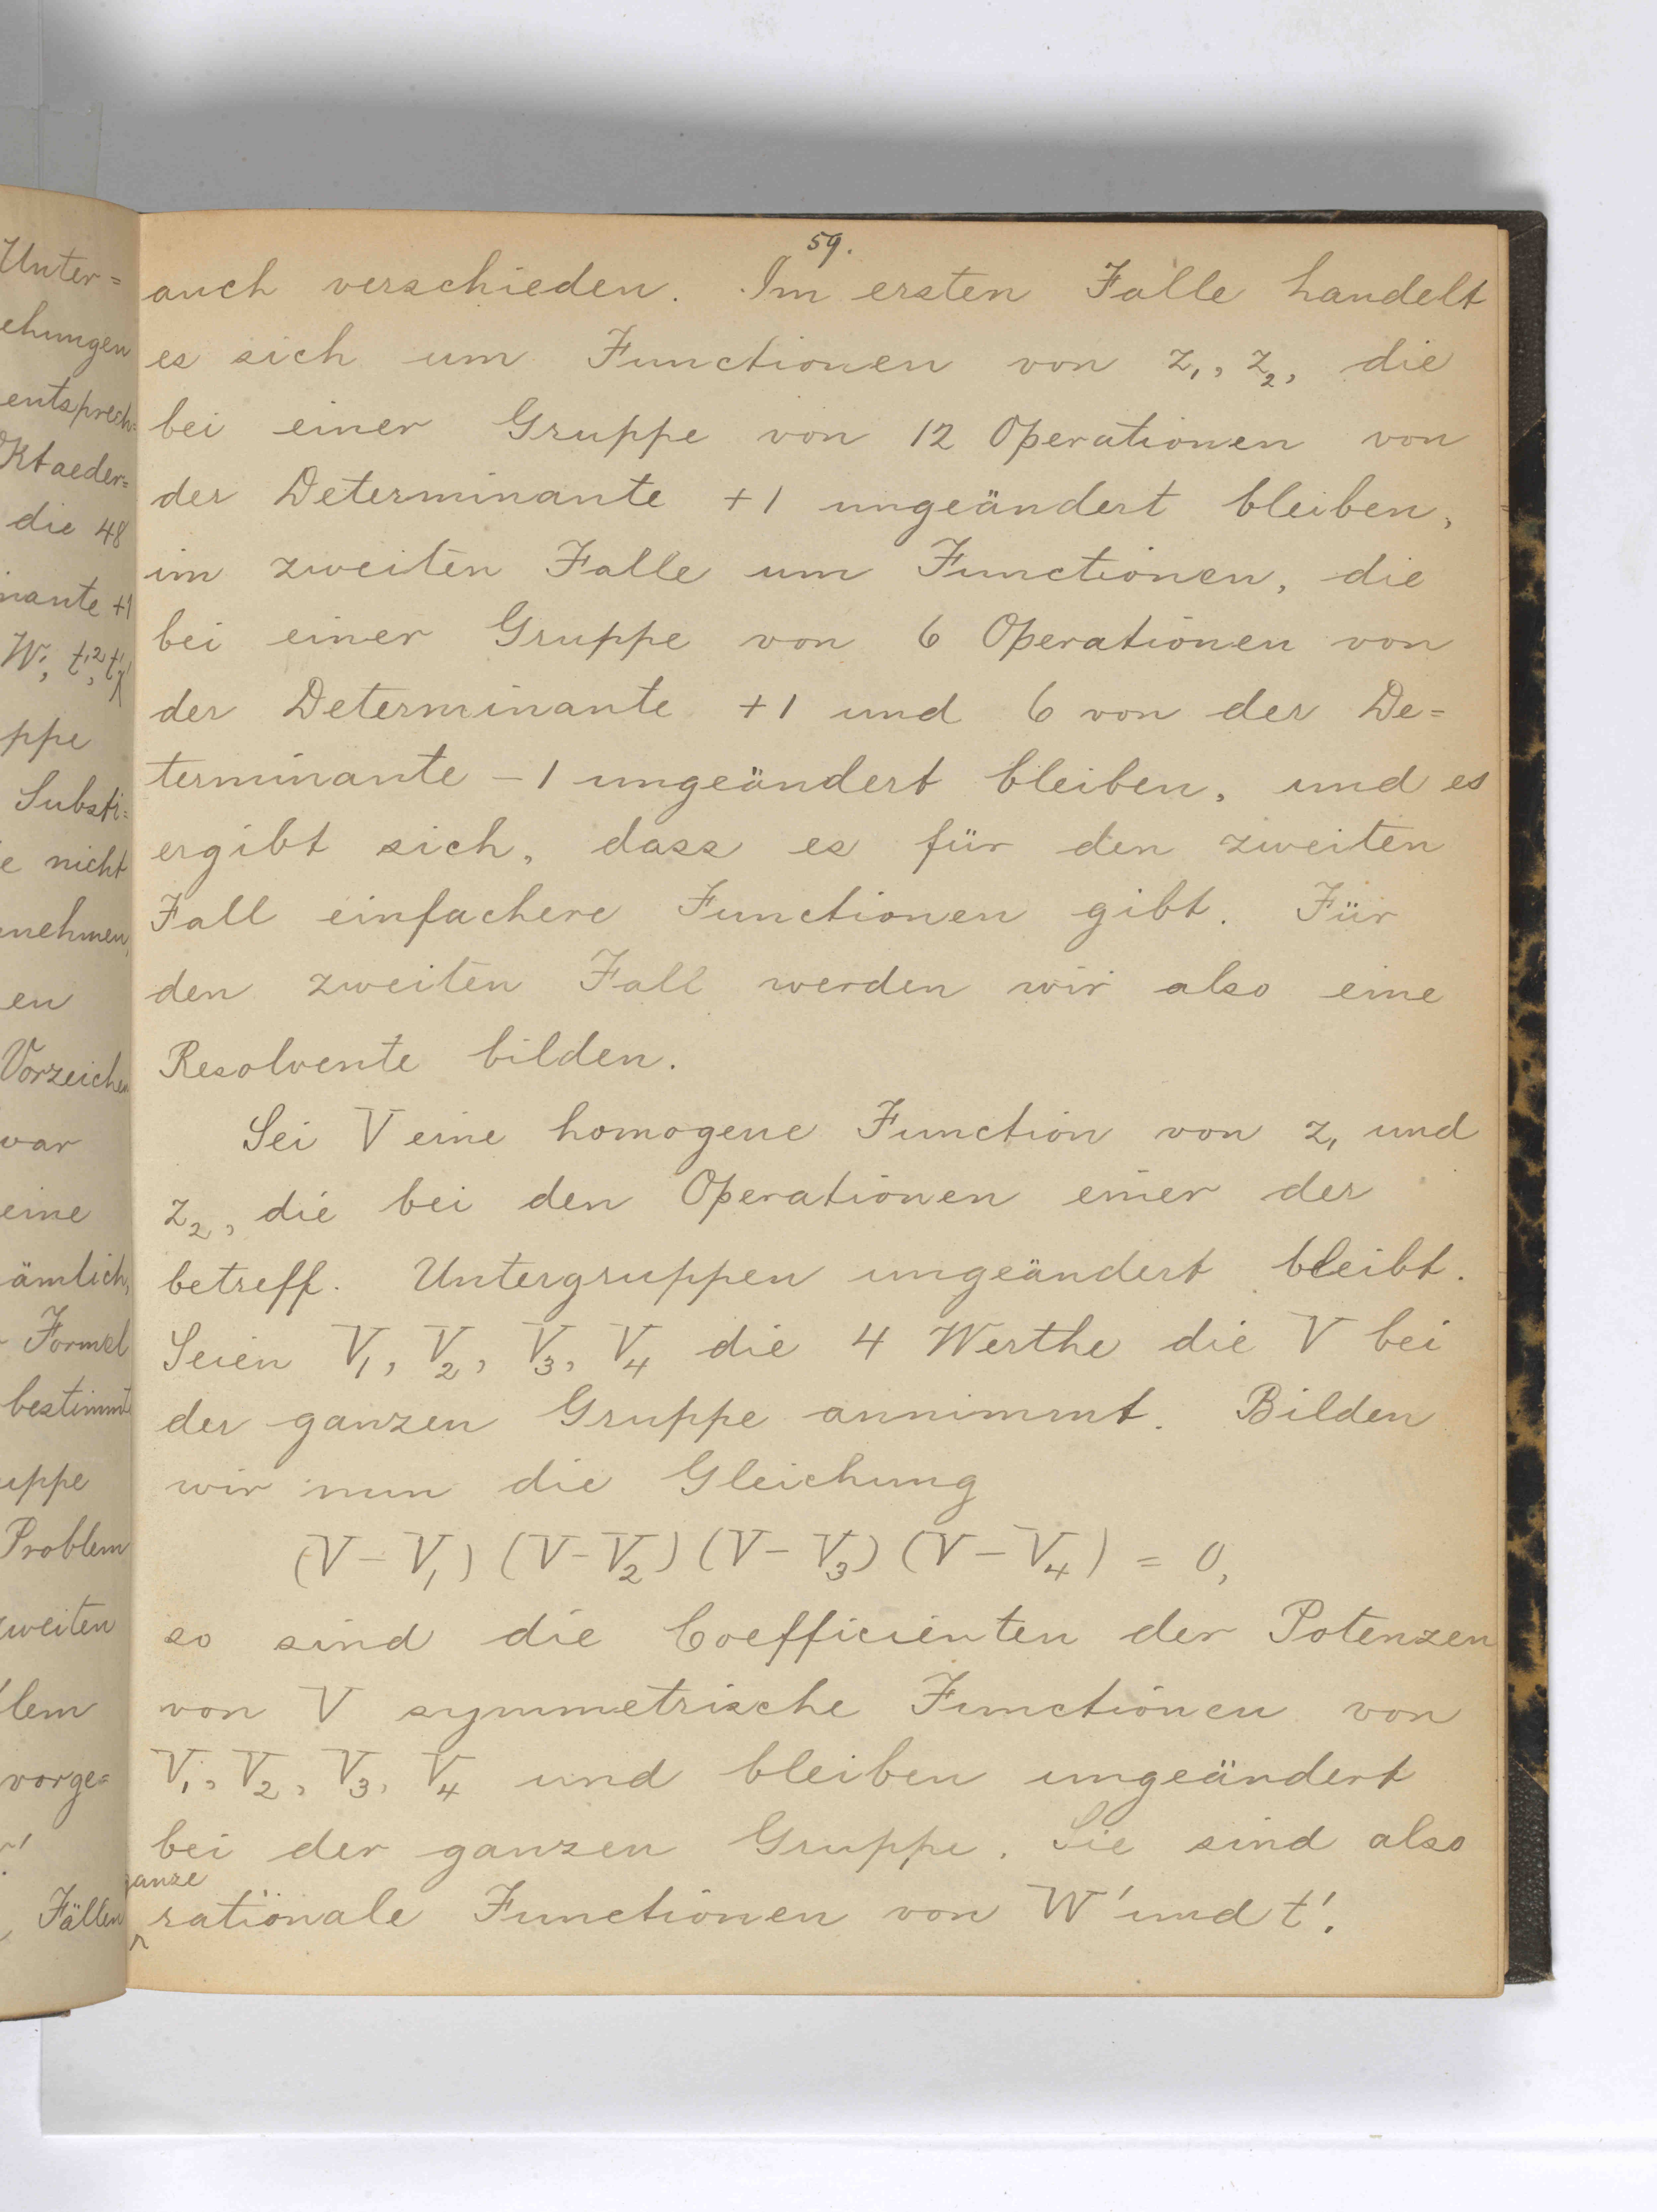 Unter=
ehungen
entsprech=
Oktaeder=
die 48
inante +1
W;
ppe
Substi=
e nicht
nehmen,
en
Vorzeichen
var
eine
ämlich,
Formel
bestimmte
uppe
Problem
zweiten
lem
vorge=
Fällen
59.
auch verschieden. Im ersten Falle handelt
es sich um Functionen von z₁, z₂, die
bei einer Gruppe von 12 Operationen von
der Determinante +1 ungeändert bleiben,
im zweiten Falle um Functionen, die
bei einer Gruppe von 6 Operationen von
der Determinante +1 und 6 von der De=
terminante -1 ungeändert bleiben, und es
ergibt sich, dass es für den zweiten
Fall einfachere Functionen gibt. Für
den zweiten Fall werden wir also eine
Resolvente bilden.
Sei V eine homogene Function von z₁ und
z₂, die bei den Operationen einer der
betreff. Untergruppen ungeändert bleibt.
Seien V₁, V₂, V₃, V₄ die 4 Werthe die V bei
der ganzen Gruppe annimmt. Bilden
wir nun die Gleichung
(V - V₁) (V - V₂) (V - V₃) (V - V₄) = 0,
so sind die Coefficienten der Potenzen
von V symmetrische Functionen von
V₁, V₂, V₃, V₄ und bleiben ungeändert
bei der ganzen Gruppe. Sie sind also
ganze
rationale Functionen von W' und t'.